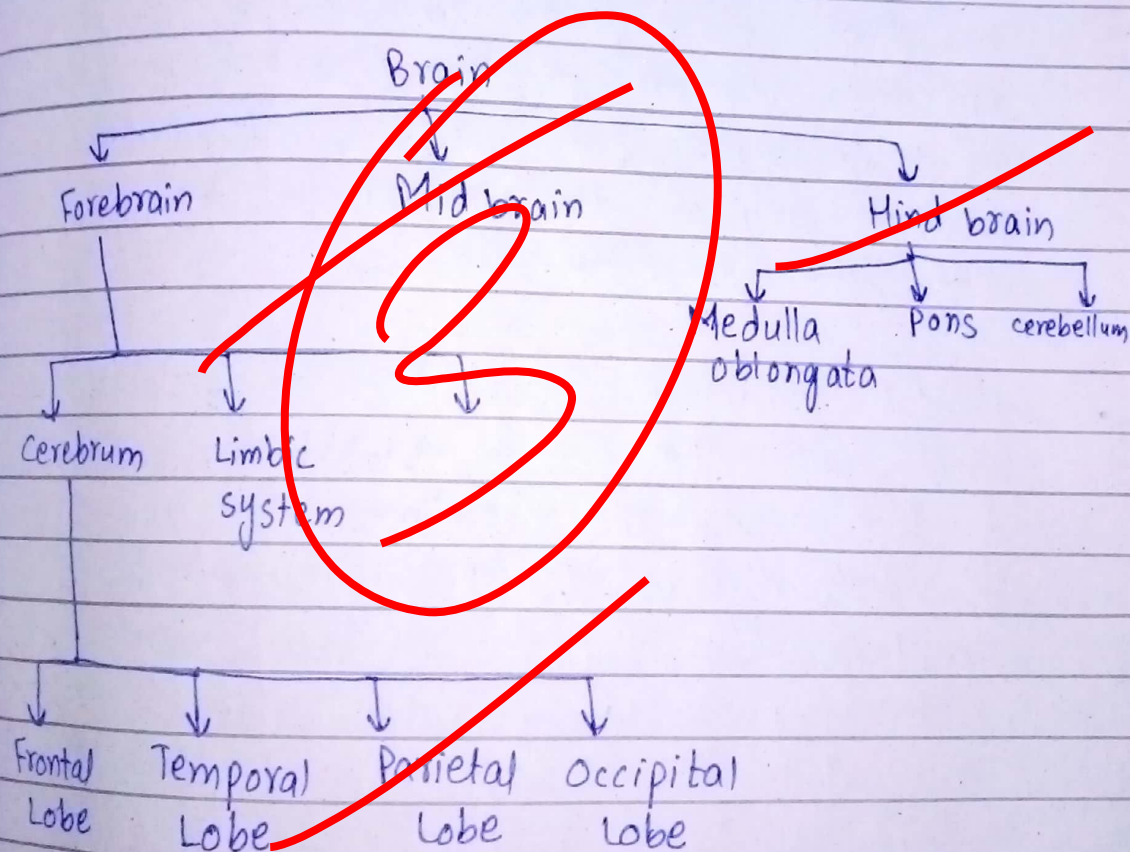 Brain
Forebrain Mid brain Hind brain
Medulla oblongata Pons cerebellum
Cerebrum Limbic system
3
Frontal Lobe Temporal Lobe Parietal Lobe Occipital Lobe